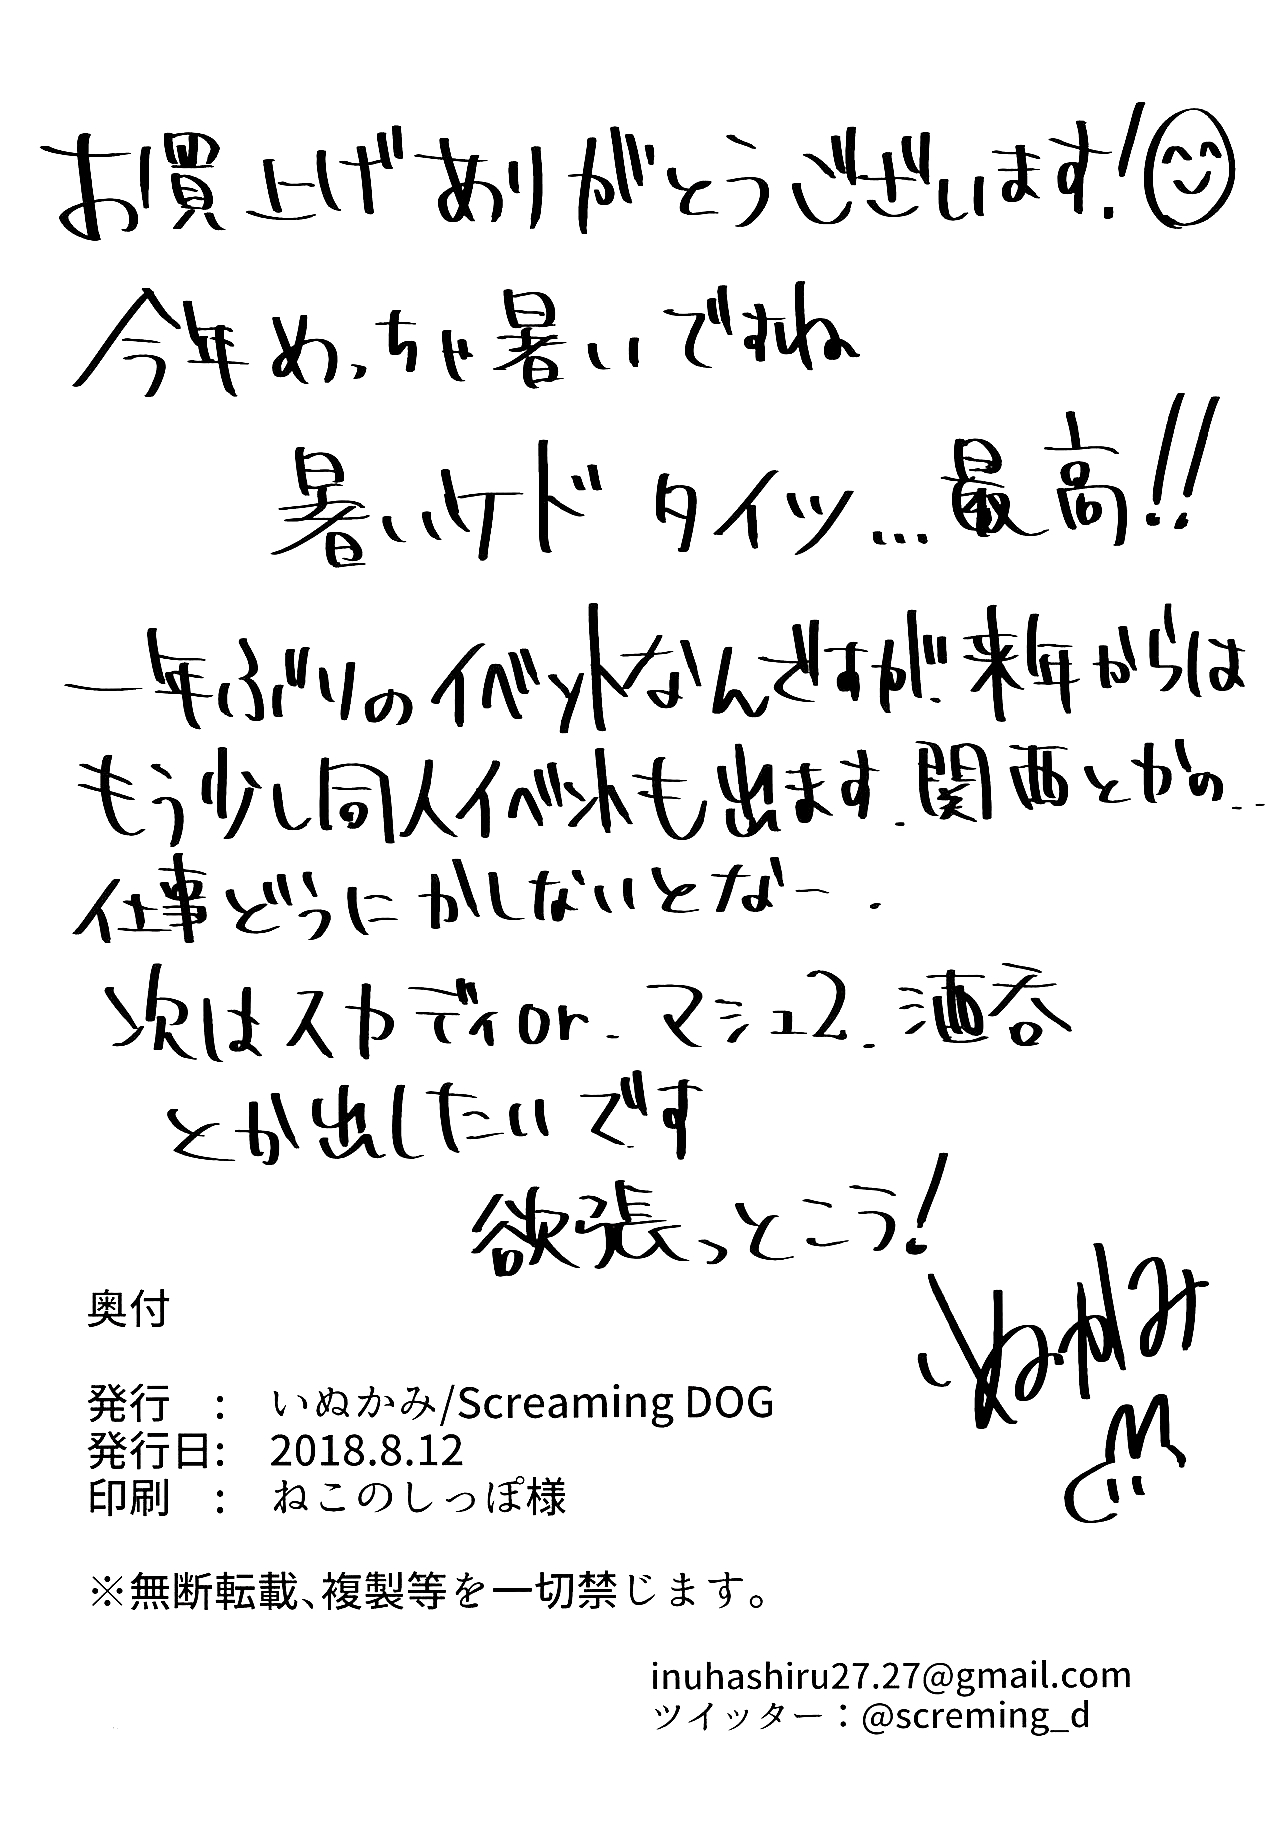 お買上げありがとうございます!
今年めっちゃ暑いですね
暑いケド タイツ...最高!!
一年ぶりのイベントなんですが、来年からは
もう少し同人イベントも出ます、関西とかの...
仕事どうにかしないとなー.
次はスカディor、マシュ2、酒呑
とか出したいです
欲張っとこう!
いぬかみ
奥付
発行 : いぬかみ/Screaming DOG
発行日: 2018.8.12
印刷 : ねこのしっぽ様
※無断転載、複製等を一切禁じます。
inuhashiru27.27@gmail.com
ツイッター:@screming_d